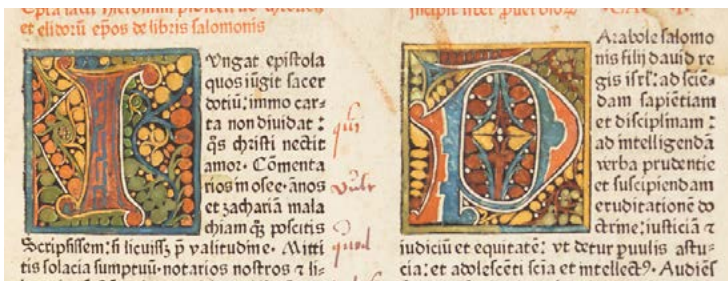 et elidorū ep̄os de libris salomonis
Vngat epistola
quos iūgit sacer
dotiū: immo car-
ta non diuidat:
q̄s christi nectit
amor. Cōmenta
rios in osee. amos
et zachariā mala
chiam q̄ȝ poscitis
Scripsissem: si licuiss; p̄ valitudine. Mitti
tis solacia sumptuū. notarios nostros ⁊ li-
qui
vult
quod
incipit liber
Arabole salomo
nis filij dauid re
gis isrl̄: ad sciē-
dam sapiētiam
et disciplinam:
ad intelligendā
verba prudentie
et suscipiendam
eruditationē do
ctrine: iusticiā ⁊
iudiciū et equitatē: vt detur puulis astu-
cia: et adolescēti scīa et intellect9. Audiēs